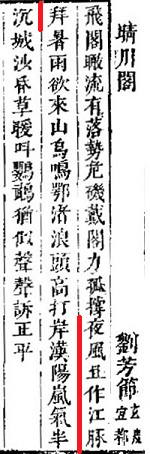 晴川閣
劉芳節玄度宜都
飛閣瞰流有落勢危磯戴閣力孤撐夜風丑作江豚
拜暑雨欲來山鳥鳴鄂渚浪頭高打岸漢陽嵐氣半
沉城洲昏草暖叫鸚鵡猶似聲聲訴正平